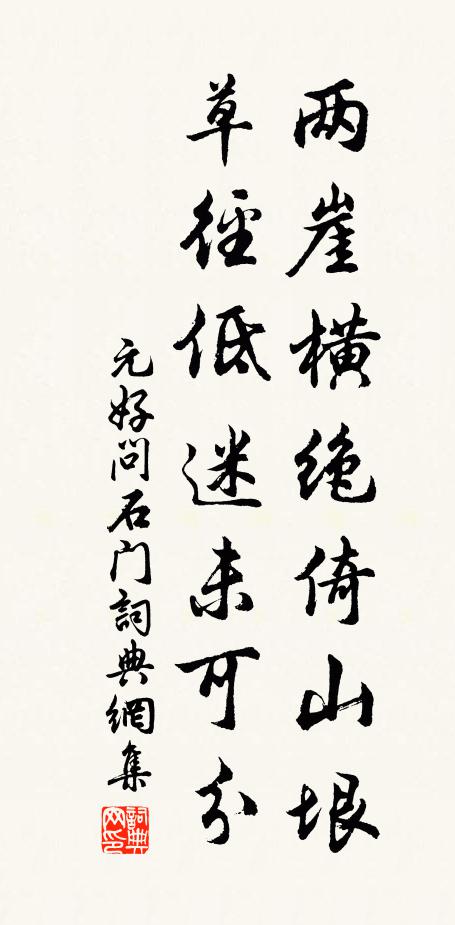 两崖横绝倚山垠
草径低迷未可分
元好问石门詞典網集
詞典网印